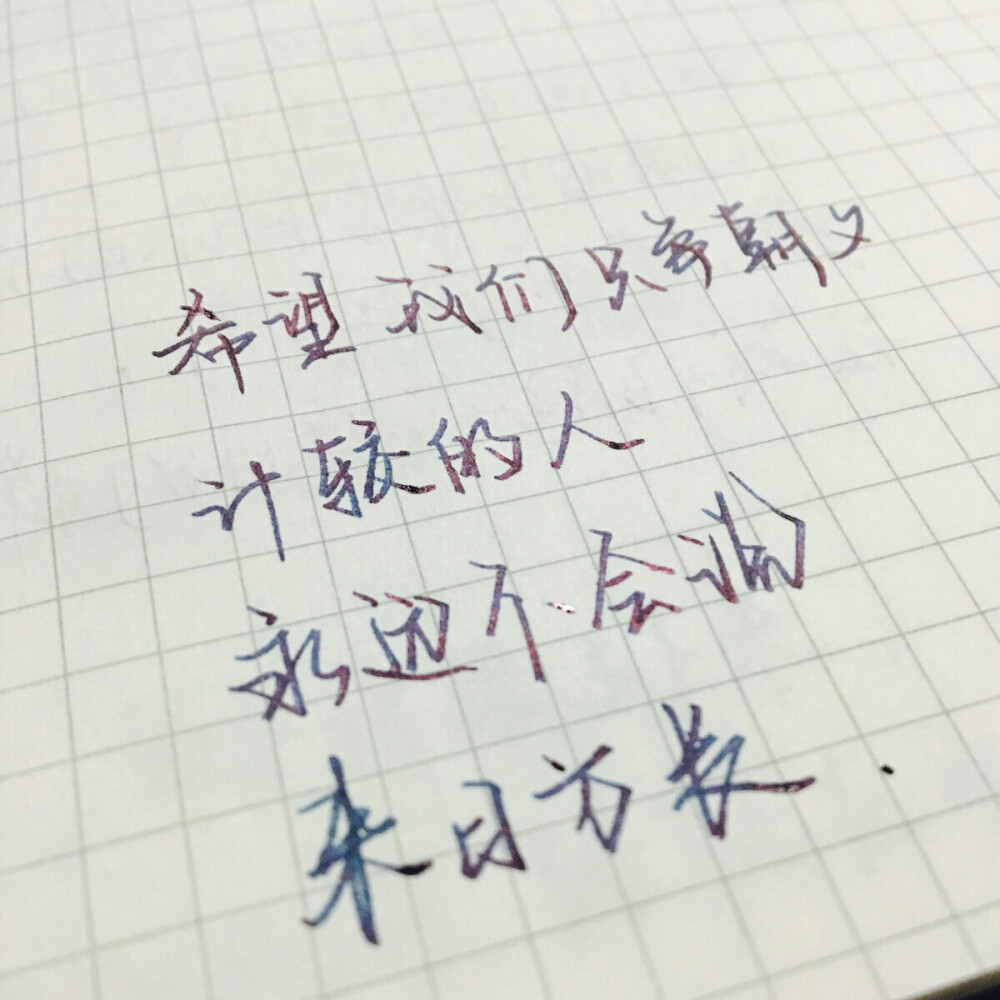 希望我们只争朝夕
计较的人
永远不会
来日方长.